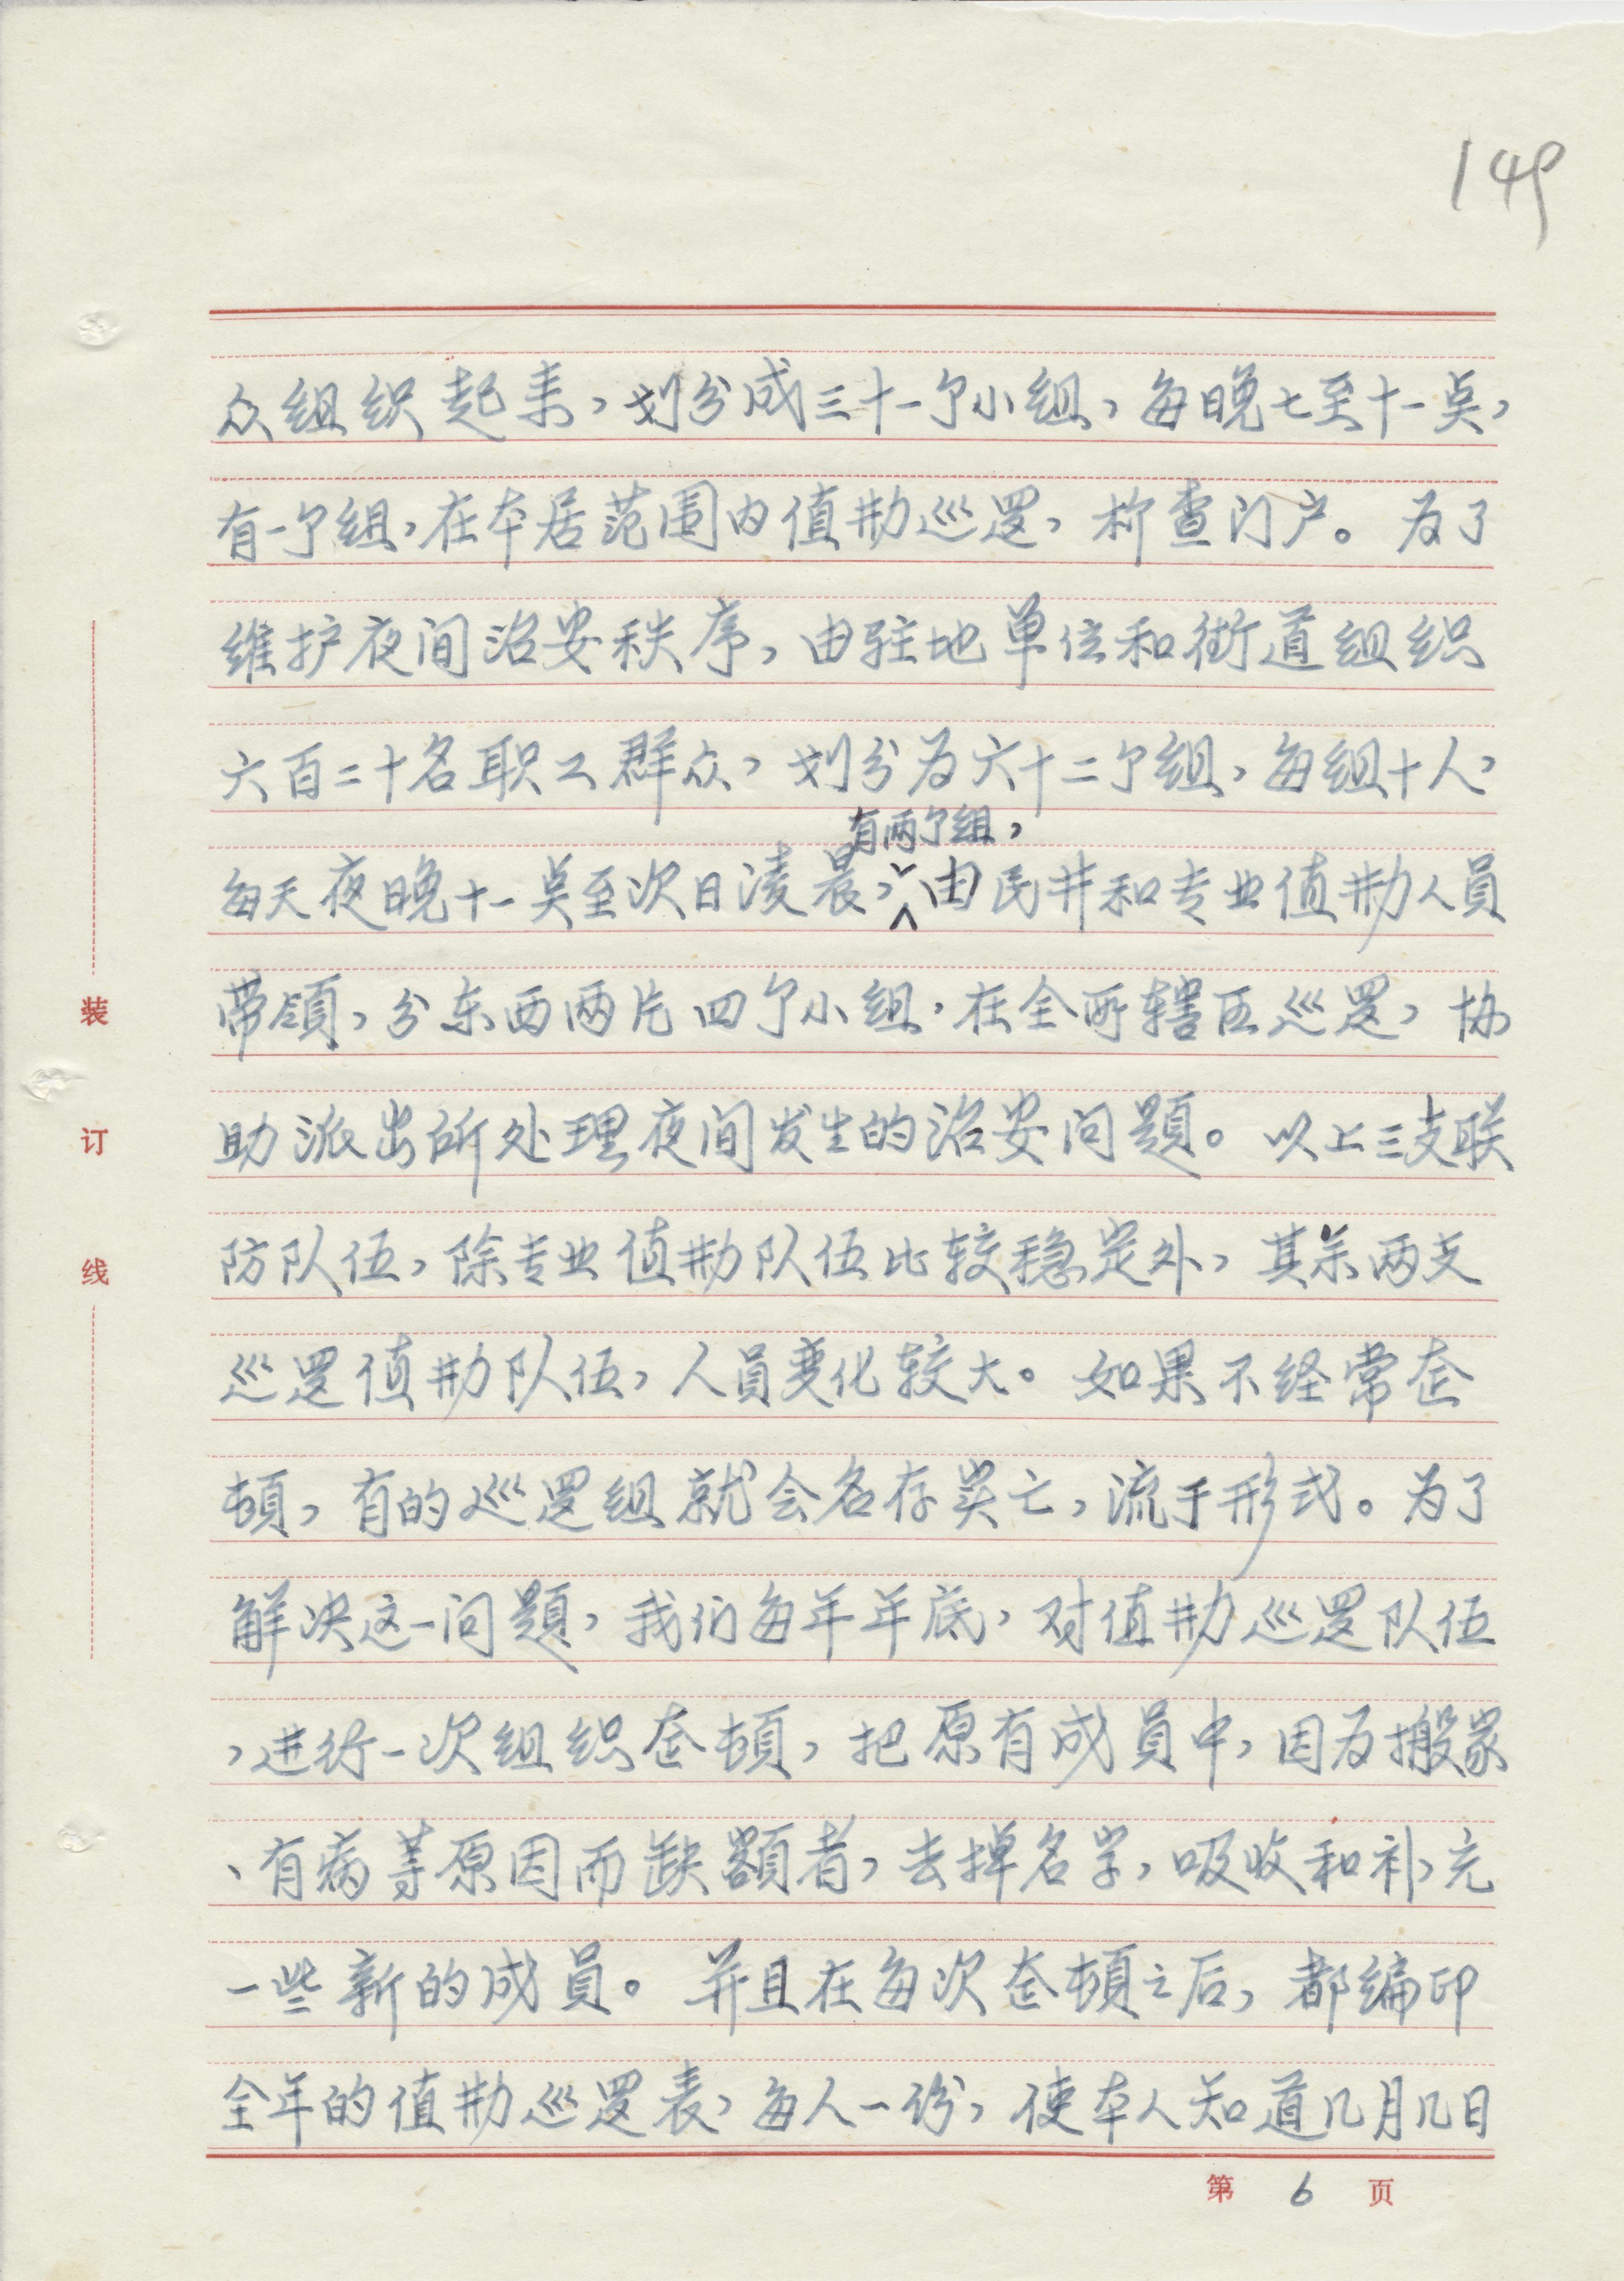 149
众组织起来，划分成三十一个小组，每晚七至十一点，
有一个组，在本居范围内值勤巡逻，栉查门户。为了
维护夜间治安秩序，由驻地单位和街道组织
六百二十名职工群众，划分为六十二个组，每组十人，
有两个组，
每天夜晚十一点至次日凌晨，由民井和专业值勤人员
带领，分东西两片四个小组，在全所辖区巡逻，协
助派出所处理夜间发生的治安问题。以上三支联
防队伍，除专业值勤队伍比较稳定外，其余两支
巡逻值勤队伍，人员变化较大。如果不经常整
顿，有的巡逻组就会名存实亡，流于形式。为了
解决这一问题，我们每年年底，对值勤巡逻队伍
，进行一次组织整顿，把原有成员中，因为搬家
、有病等原因而缺额者，去掉名字，吸收和补充
一些新的成员。并且在每次整顿之后，都编印
全年的值勤巡逻表，每人一份，使本人知道几月几日
装
订
线
第 6 页